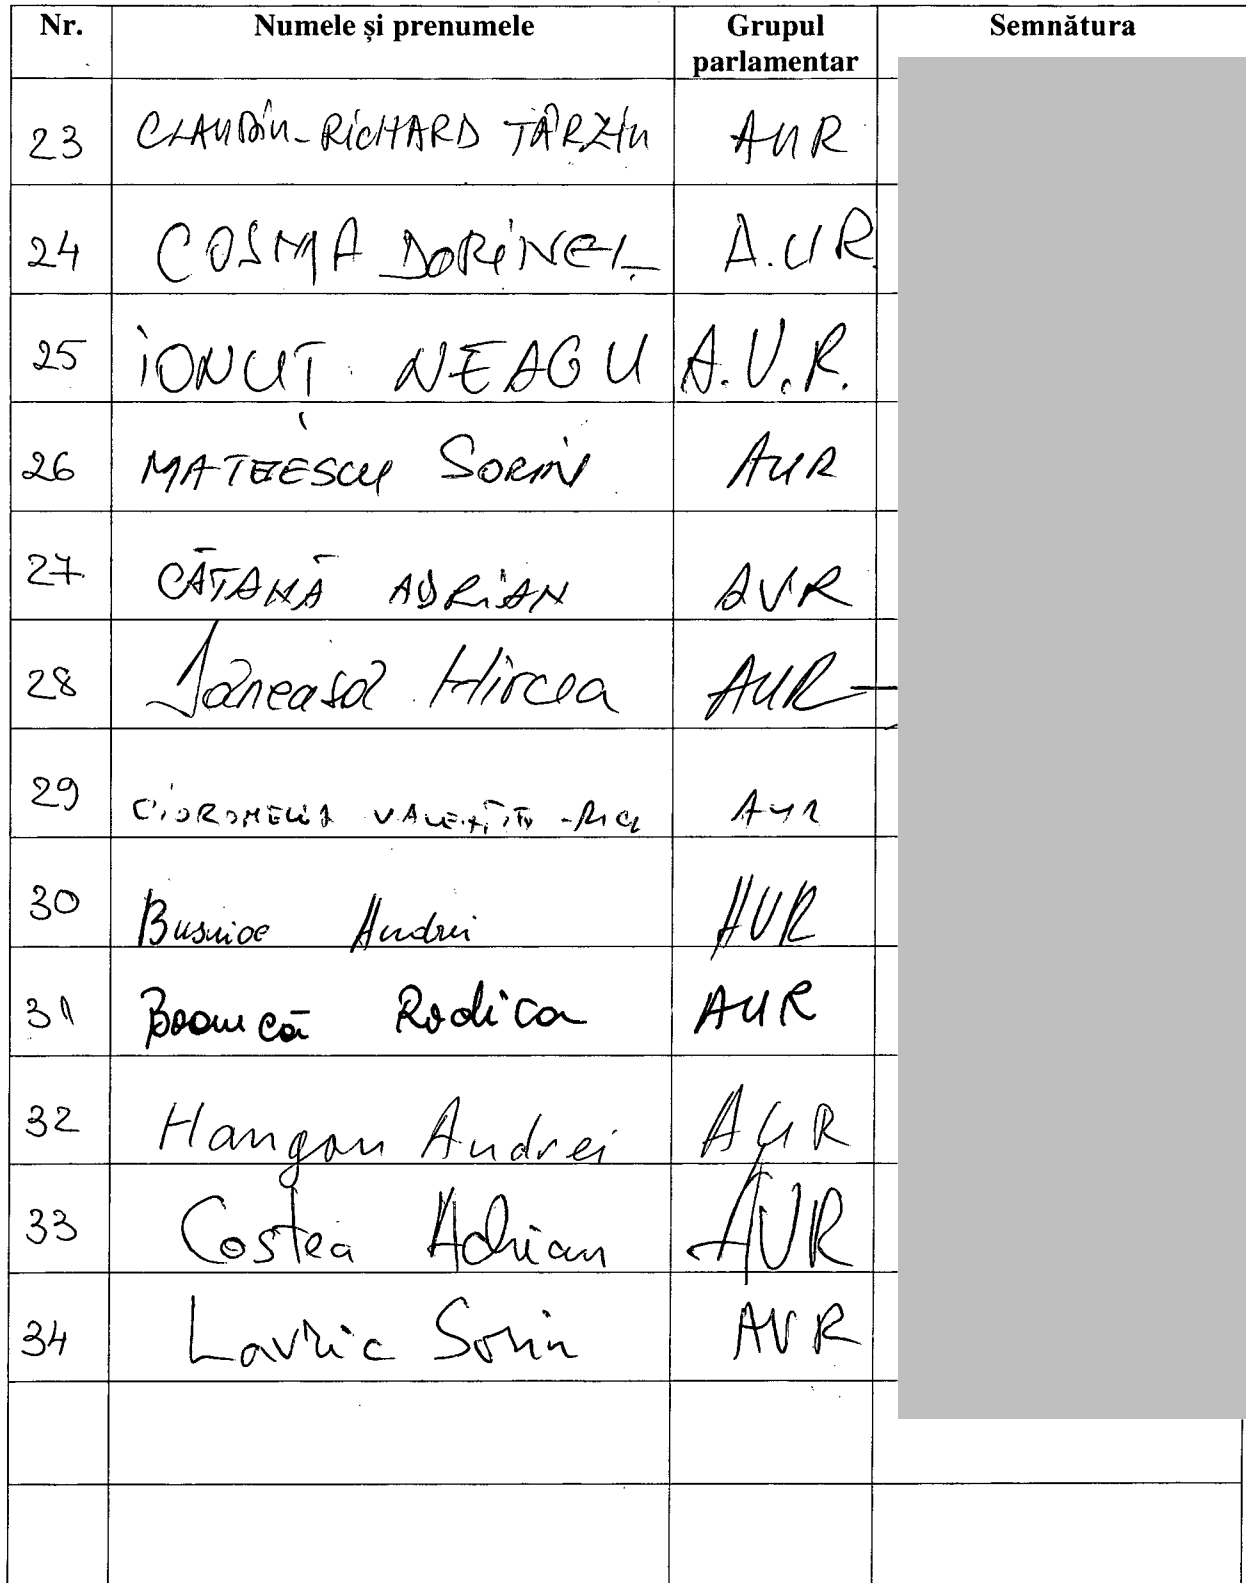 Nr. Numele și prenumele Grupul parlamentar Semnătura
23 CLAUDIU-RICHARD TÂRZIU AUR
24 COSMA DORINEL A.UR.
25 IONUȚ NEAGU A.U.R.
26 MATEESCU SORIN AUR
27 CĂTANĂ ADRIAN AUR
28 Dăneasă Mircea AUR
29 VALENTIN AUR
30 Busuioc Andrei AUR
31 Boancă Rodica AUR
32 Hangan Andrei AUR
33 Costea Adrian AUR
34 Lavric Sorin AUR